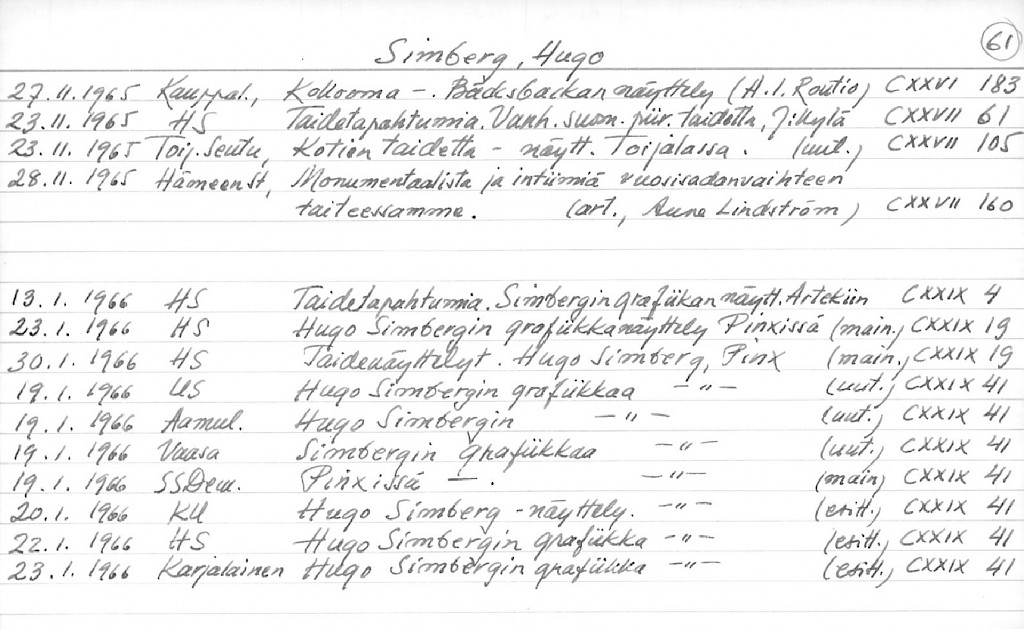 61
Simberg, Hugo
27.11.1965 Kauppal., Kokooma —. Bäcksbackan näyttely (A.I. Routio) CXXVI 183
23.11.1965 HS Taidetapahtumia. Vanh. suom. piir. taidetta, Jikylä CXXVII 61
23.11.1965 Toij. Seutu, Kotien taidetta - näytt. Toijalassa. (uut.) CXXVII 105
28.11.1965 Hämeen St, Monumentaalista ja intiimiä vuosisadanvaihteen
taiteessamme. (art., Aune Lindström) CXXVII 160
13.1.1966 HS Taidetapahtumia. Simbergin grafiikan näytt. Artekiin CXXIX 4
23.1.1966 HS Hugo Simbergin grafiikkanäyttely Pinxissä (main.) CXXIX 19
30.1.1966 HS Taidenäyttelyt. Hugo Simberg, Pinx (main.) CXXIX 19
19.1.1966 US Hugo Simbergin grafiikkaa —"— (uut.) CXXIX 41
19.1.1966 Aamul. Hugo Simbergin —"— (uut.) CXXIX 41
19.1.1966 Vaasa Simbergin grafiikkaa —"— (uut.) CXXIX 41
19.1.1966 SSDem. Pinxissä —. —"— (main) CXXIX 41
20.1.1966 KU Hugo Simberg -näyttely. —"— (esitt.) CXXIX 41
22.1.1966 HS Hugo Simbergin grafiikka —"— (esitt.) CXXIX 41
23.1.1966 Karjalainen Hugo Simbergin grafiikka —"— (esitt.) CXXIX 41